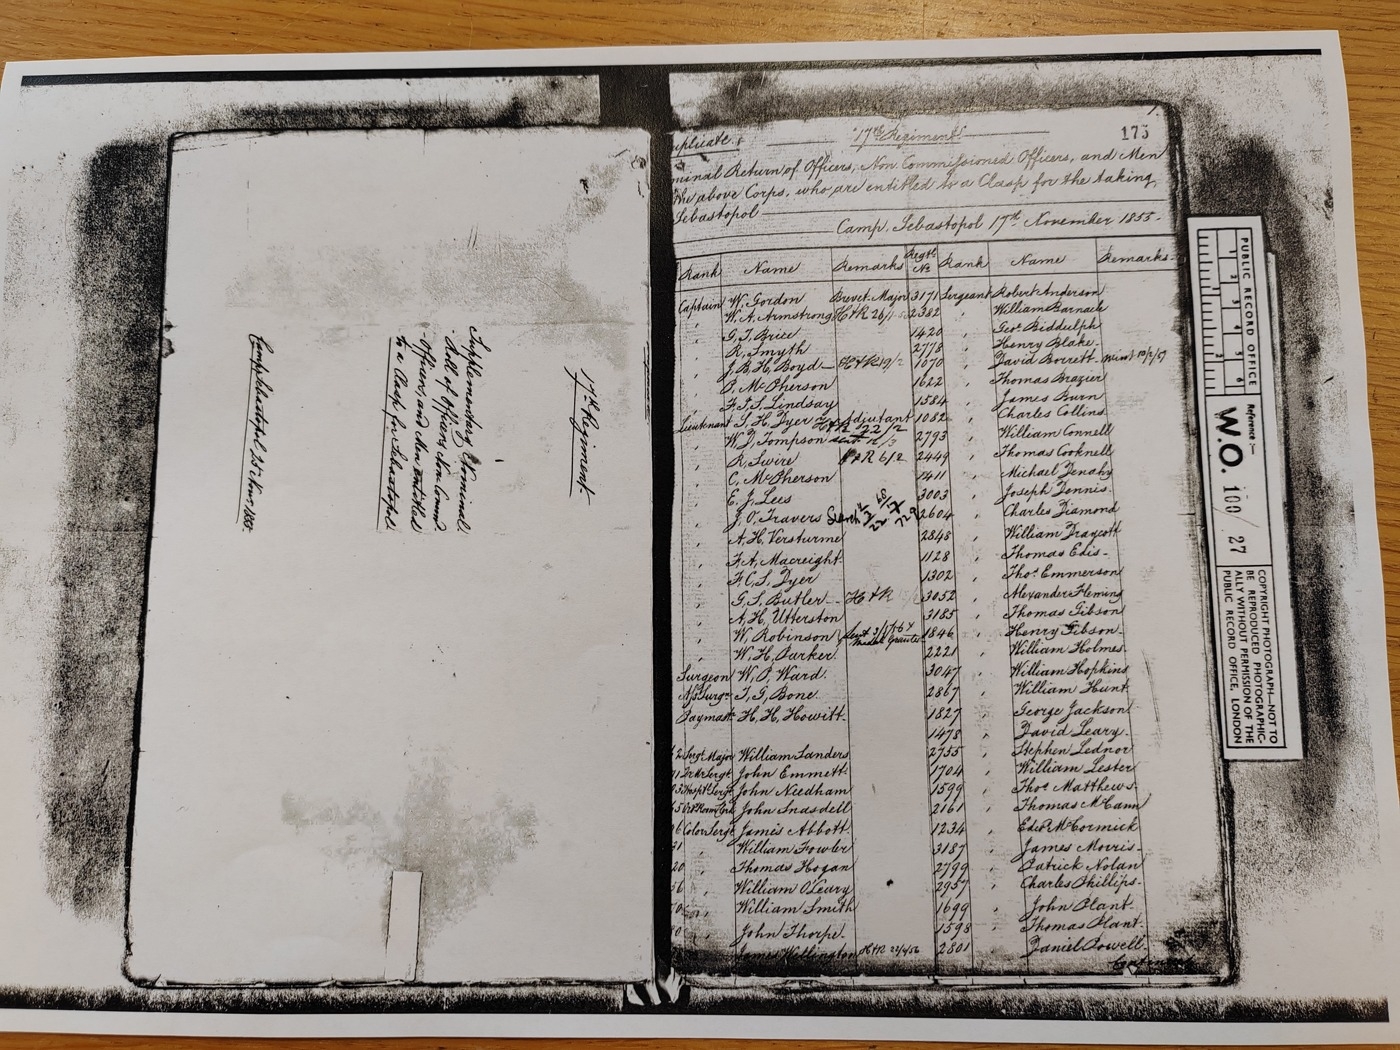 17th Regiment.
Supplementary Nominal
Roll of Officers Non Commd
Officers, and Men entitled
to a Clasp for Sebastopol.
Camp Sebastopol 25th Novr 1855.
uplicate. "17th Regiment" 173
minal Return of Officers, Non Commissioned Officers, and Men
the above Corps, who are entitled to a Clasp for the taking
Sebastopol
Camp, Sebastopol 17th November 1855.
Rank Name Remarks Regtl No. Rank Name Remarks
Captain W. Gordon Brevet-Major 3171 Sergeant Robert Anderson
" W. A. Armstrong H&R 26/ 2382 " William Barnack
" G. T. Brice 1420 " Geo. Biddulph
" R. Smyth 2778 " Henry Blake
" J. B. H. Boyd H&R 19/2 1070 " David Borrett
" P. McPherson 1622 " Thomas Brazier
" F. J. S. Lindsay 1584 " James Burn
Lieutenant T. H. Dyer Adjutant H&R 22/2 1082 " Charles Collins
" W. D. Tompson sent 12/3 2793 " William Connell
" R. Swire H&R 6/2 2449 " Thomas Cooknell
" C. McPherson 1411 " Michael Denaby
" E. J. Lees 3003 " Joseph Dennis
" J. O. Travers 2604 " Charles Diamond
" A. H. Versturme 2848 " William Draycott
" F. A. Macreight 1128 " Thomas Edis
" F. C. S. Dyer 1302 " Thos. Emmerson
" G. S. Butler H&R 3052 " Alexander Fleming
" A. H. Utterston 3185 " Thomas Gibson
" W. Robinson Medal Granted 1846 " Henry Gibson
" W. H. Parker 2221 " William Holmes
Surgeon W. P. Ward 3047 " William Hopkins
Asst Surgn T. G. Bone 2867 " William Hunt
Paymastr H. H. Howitt 1827 " George Jackson
1478 " David Leary
Sergt Major William Sanders 2755 " Stephen Lednor
Qr Mr Sergt John Emmett 1704 " William Lester
Hospl Sergt John Needham 1599 " Thos. Matthews
John Snasdell 2161 " Thomas McCann
Color Sergt James Abbott 1234 " Edwd McCormick
" William Fowler 3187 " James Morris
" Thomas Hogan 2799 " Patrick Nolan
" William O'Leary 2957 " Charles Phillips
" William Smith 1699 " John Plant
" John Thorpe 1598 " Thomas Plant
James Wellington H&R 22/4/56 2801 Daniel Powell
PUBLIC RECORD OFFICE
1 2 3 4 5 6
1 2
Reference:-
W.O. 100/27
COPYRIGHT PHOTOGRAPH—NOT TO
BE REPRODUCED PHOTOGRAPHIC-
ALLY WITHOUT PERMISSION OF THE
PUBLIC RECORD OFFICE, LONDON